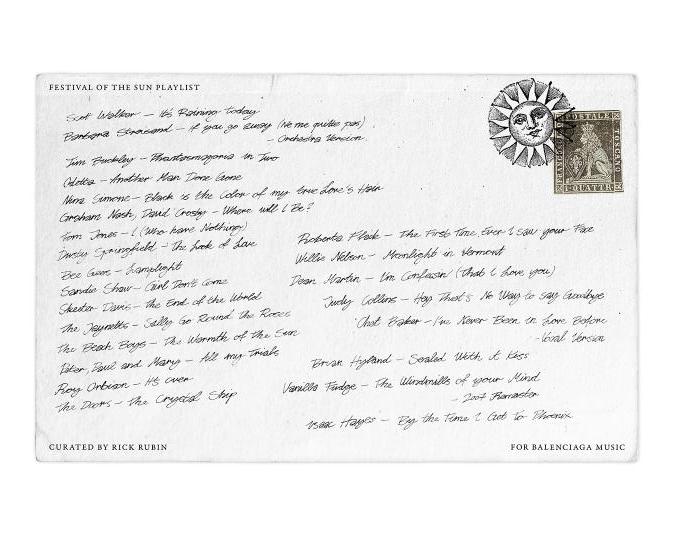 FESTIVAL OF THE SUN PLAYLIST
Scott Walker - It's Raining Today
Barbara Streisand - if you go away (Ne me quitte pas)
- Orchestra Version
Tim Buckley - Phantasmagoria in Two
Odetta - Another Man Done Gone
Nina Simone - Black is the Color of my true Love's Hair
Graham Nash, David Crosby - Where will I Be?
Tom Jones - I (Who have Nothing)
Dusty Springfield - The Look of Love
Bee Gees - Lamplight
Sandie Shaw - Girl Don't Come
Skeeter Davis - The End of the World
The Jaynetts - Sally Go Round the Roses
The Beach Boys - The Warmth of the Sun
Peter, Paul and Mary - All my Trials
Roy Orbison - It's over
The Doors - The Crystal Ship
Roberta Flack - The First Time, Ever I saw your Face
Willie Nelson - Moonlight in Vermont
Dean Martin - I'm Confessin' (That I Love you)
Judy Collins - Hey, That's No Way to say Goodbye
Chet Baker - I've Never Been in Love Before
- Vocal Version
Brian Hyland - Sealed With A Kiss
Vanilla Fudge - The Windmills of your Mind
- 2007 Remaster
Isaac Hayes - By the Time I Get To Phoenix
CURATED BY RICK RUBIN
FOR BALENCIAGA MUSIC
POSTALE
TOSCANO
1 QUATTR